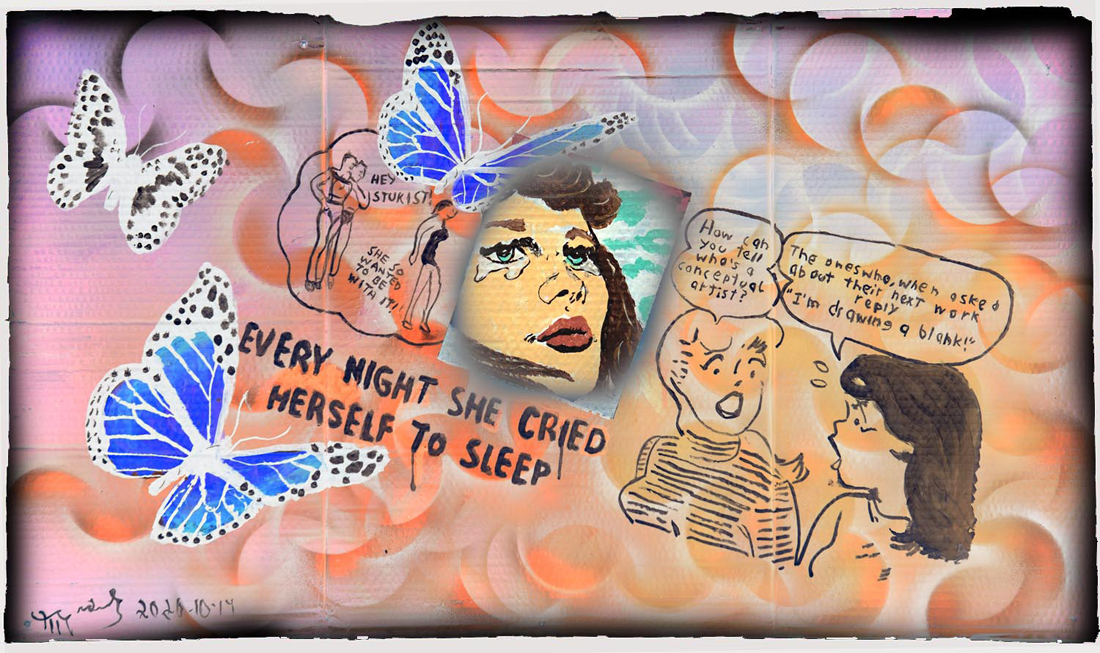 HEY
STUKIST!
SHE SO
WANTED
TO BE
WITH IT!
EVERY NIGHT SHE CRIED
HERSELF TO SLEEP
How can
you tell
who's a
conceptual
artist?
The ones who, when asked
about their next work
reply
"I'm drawing a blank!"